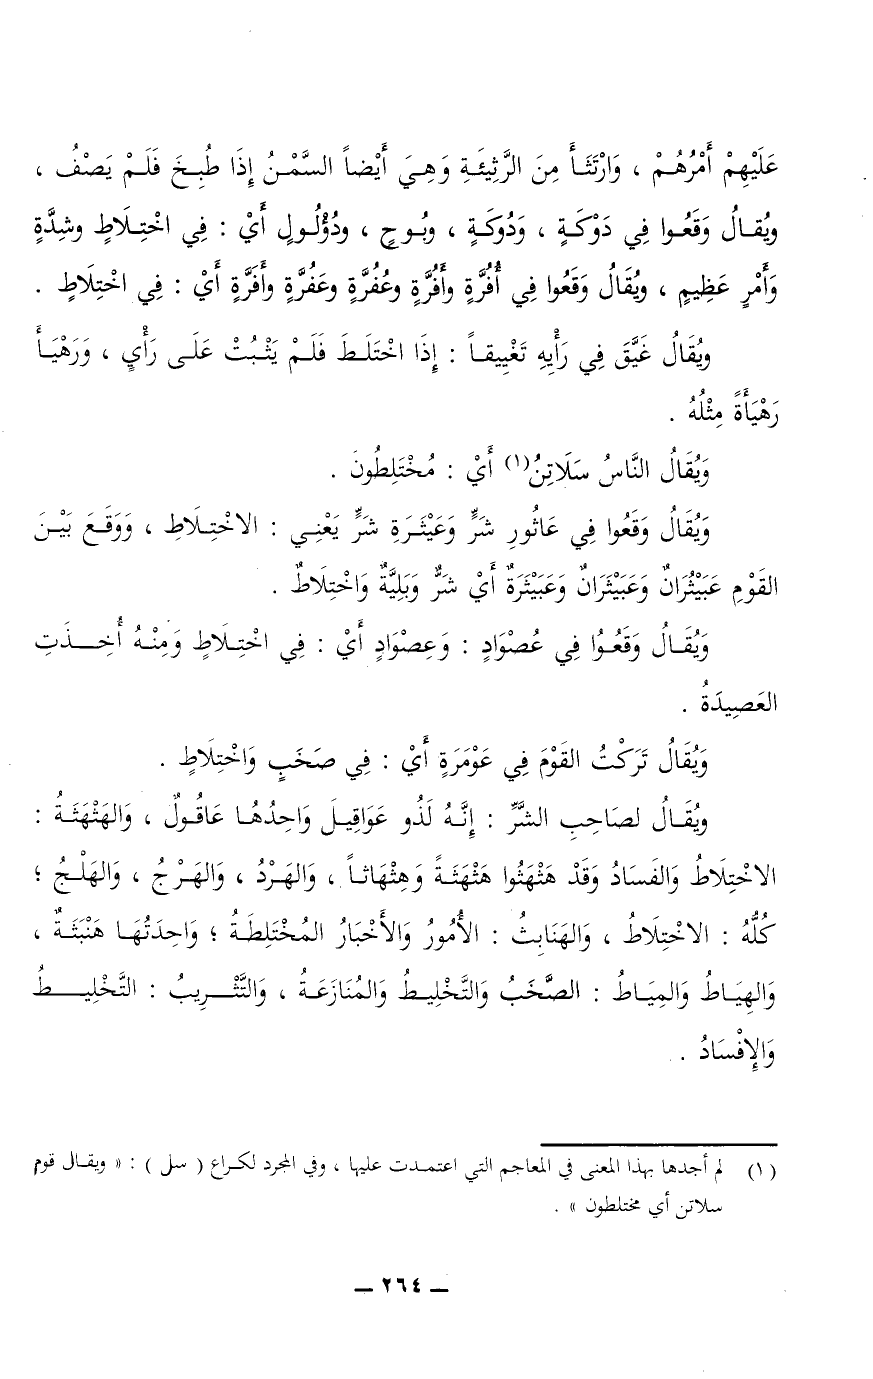 عَلَيْهِمْ أَمْرُهُمْ ، وَارْتَثَأَ مِنَ الرَّثِيئَةِ وَهِيَ أَيْضاً السَّمْنُ إِذَا طُبِخَ فَلَمْ يَصْفُ ،
ويُقالُ وَقَعُوا فِي دَوْكَةٍ ، وَدُوكَةٍ ، وبُوحٍ ، ودُؤْلُولٍ أَيْ : فِي اخْتِلَاطٍ وشِدَّةٍ
وَأَمْرٍ عَظِيمٍ ، ويُقَالُ وَقَعُوا فِي أُفُرَّةٍ وأَفُرَّةٍ وعُفُرَّةٍ وعَفُرَّةٍ وأَفَرَّةٍ أَيْ : فِي اخْتِلَاطٍ .
ويُقَالُ غَيَّقَ فِي رَأْيِهِ تَغْيِيقاً : إِذَا اخْتَلَطَ فَلَمْ يَثْبُتْ عَلَى رَأْيٍ ، وَرَهْيَأَ
رَهْيَأَةً مِثْلُهُ .
وَيُقَالُ النَّاسُ سَلَاتِنُ(١) أَيْ : مُخْتَلِطُونَ .
وَيُقَالُ وَقَعُوا فِي عَاثُورِ شَرٍّ وَعَيْثَرَةِ شَرٍّ يَعْنِي : الاخْتِلَاطِ ، وَوَقَعَ بَيْنَ
القَوْمِ عَبَيْثُرَانٌ وَعَبَيْثَرَانٌ وَعَبَيْثَرَةٌ أَيْ شَرٌّ وَبَلِيَّةٌ وَاخْتِلَاطٌ .
وَيُقَالُ وَقَعُوْا فِي عُصْوَادٍ : وَعِصْوَادٍ أَيْ : فِي اخْتِلَاطٍ وَمِنْهُ أُخِذَتِ
العَصِيدَةُ .
وَيُقَالُ تَرَكْتُ القَوْمَ فِي عَوْمَرَةٍ أَيْ : فِي صَخَبٍ وَاخْتِلَاطٍ .
ويُقَالُ لصَاحِبِ الشَّرِّ : إِنَّهُ لَذُو عَوَاقِيلَ وَاحِدُهُا عَاقُولٌ ، وَالهَثْهَثَةُ :
الاخْتِلَاطُ وَالفَسَادُ وَقَدْ هَثْهَثُوا هَثْهَثَةً وَهِثْهَاثاً ، وَالهَرْدُ ، وَالهَرْجُ ، وَالهَلْجُ ؛
كُلُّهُ : الاخْتِلَاطُ ، وَالهَنَابِثُ : الأُمُورُ وَالأَخْبَارُ المُخْتَلِطَةُ ؛ وَاحِدَتُهَا هَنْبَثَةٌ ،
وَالهِيَاطُ وَالمِيَاطُ : الصَّخَبُ وَالتَّخْلِيطُ وَالمُنَازَعَةُ ، وَالتَّثْرِيبُ : التَّخْلِيطُ
وَالإِفْسَادُ .
(١) لم أجدها بهذا المعنى في المعاجم التي اعتمدت عليها ، وفي المجرد لكراع ( سل ) : « ويقال قوم
سلاتن أي مختلطون » .
— ٢٦٤ —